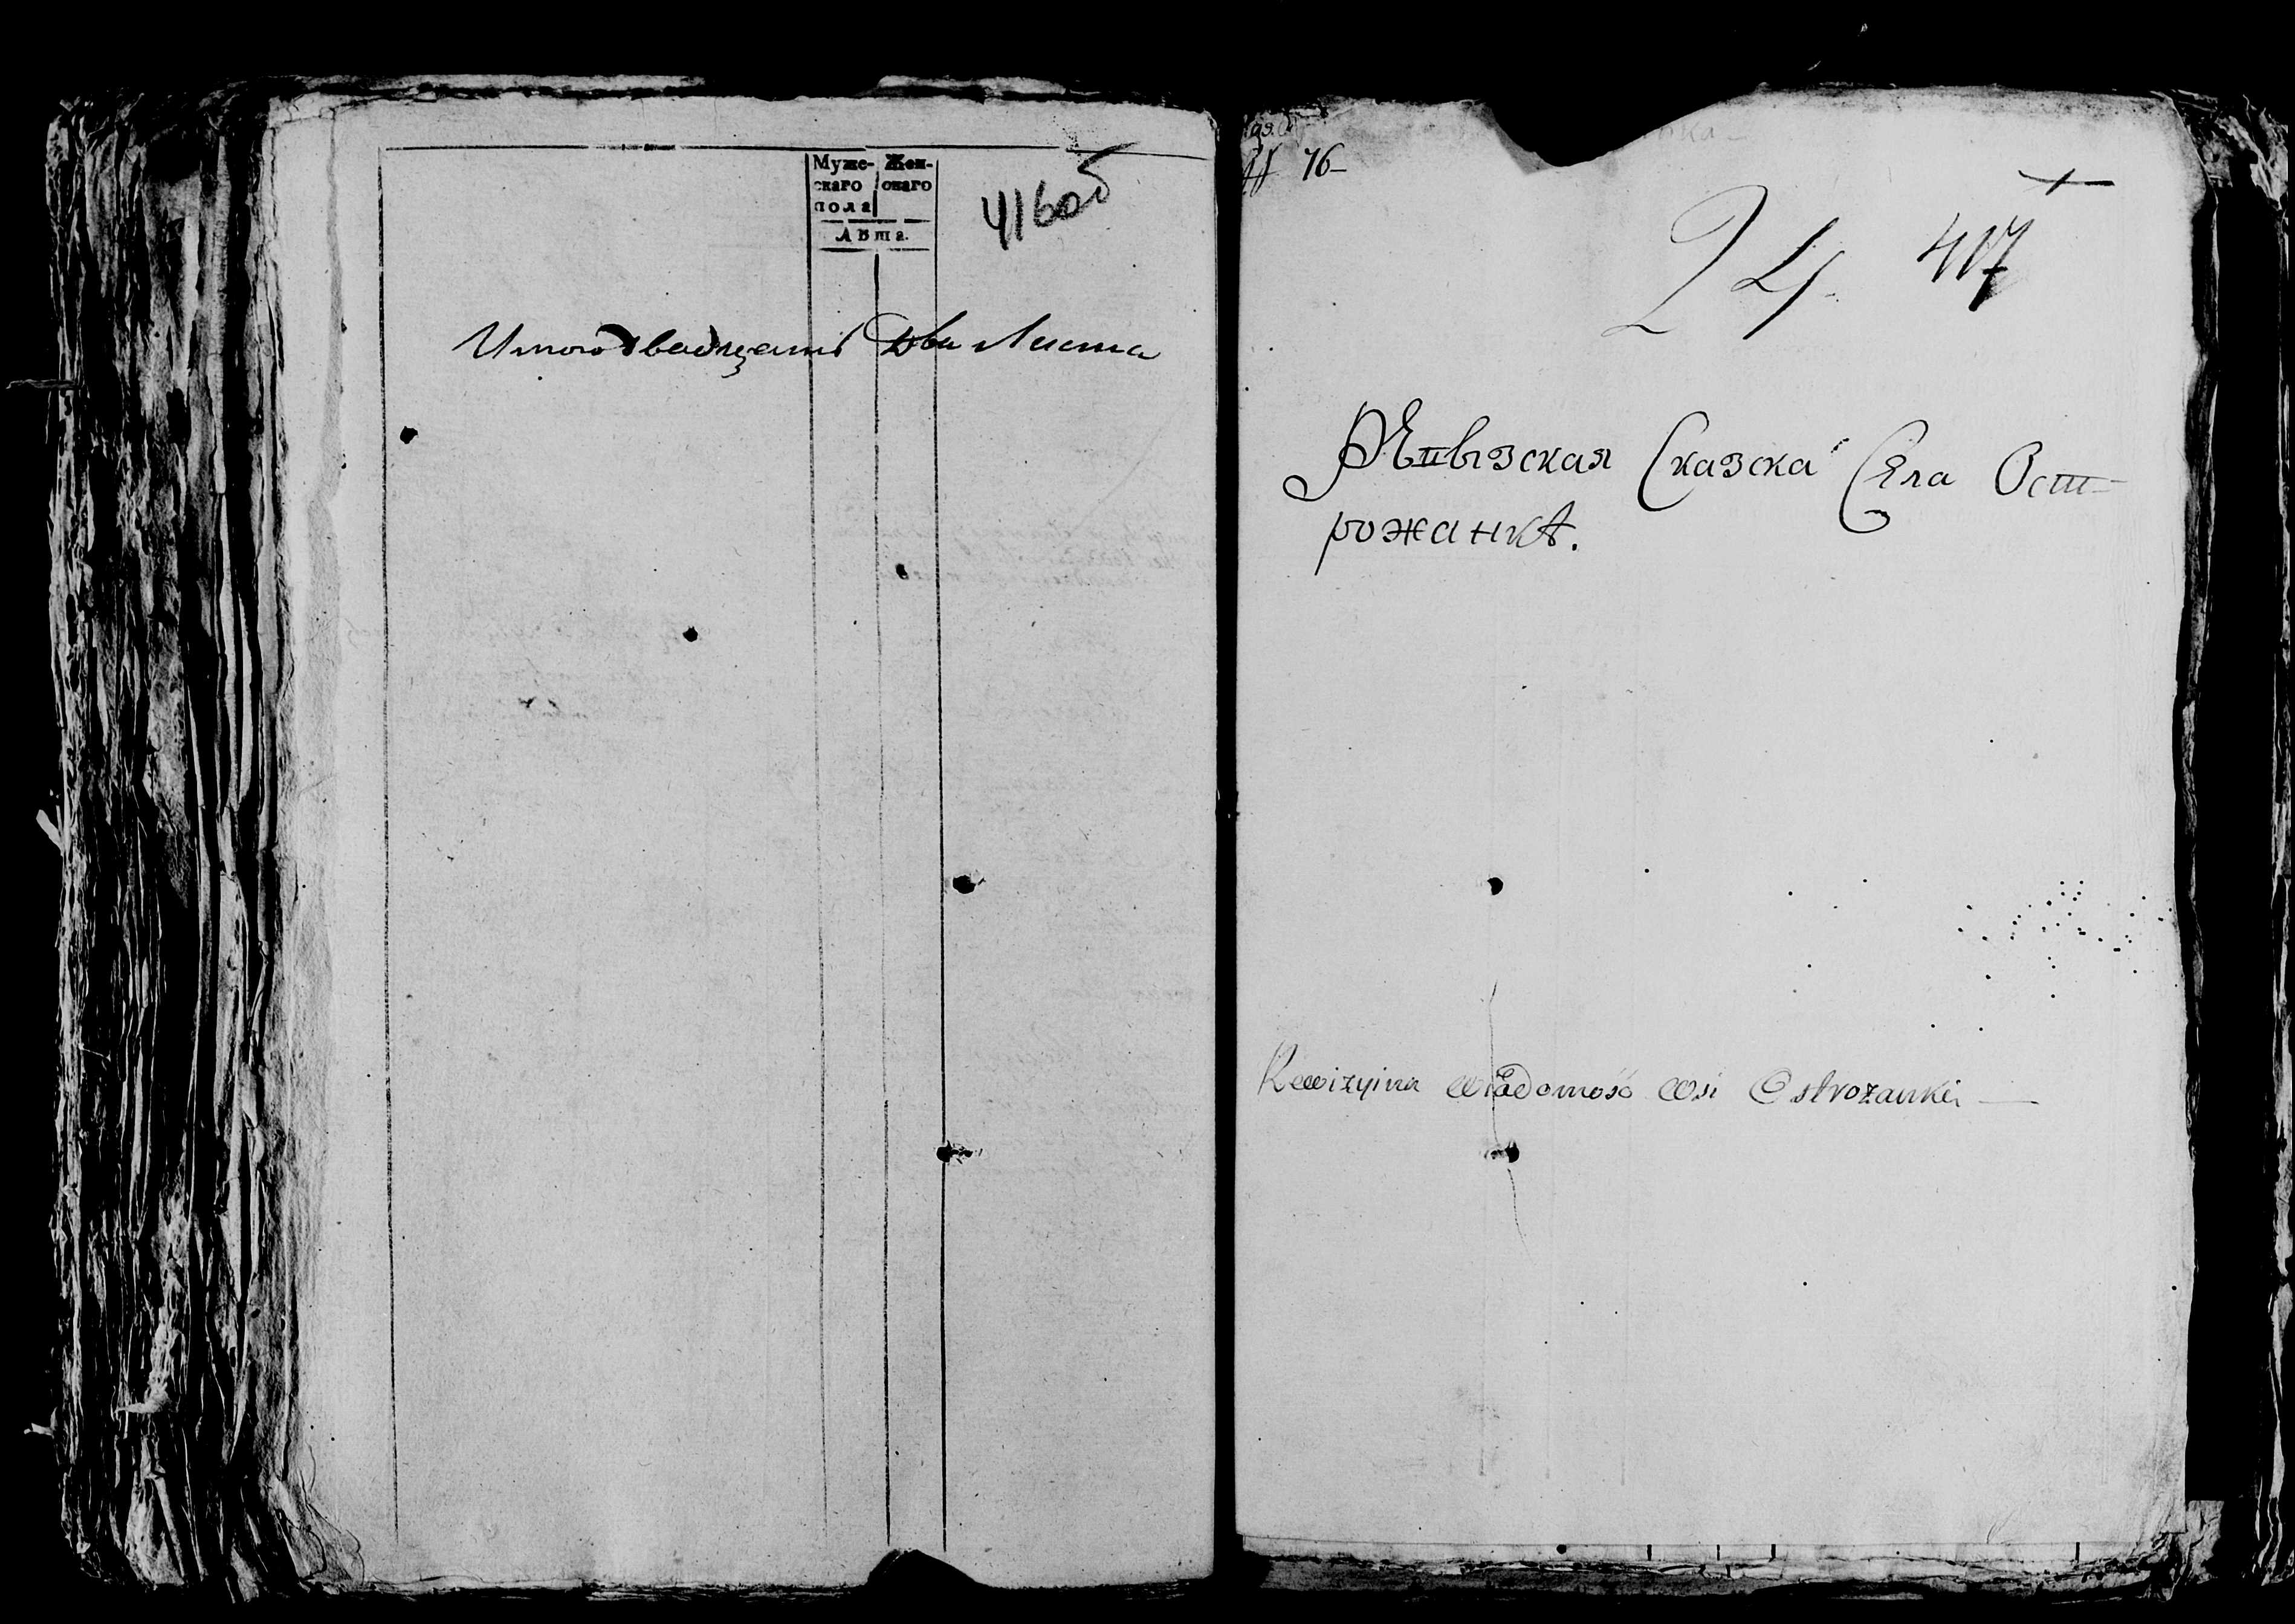 Муже- Жен-
скаго скаго
пола
Лѣта.
416об
Итого двадцать два листа
№ 16-
24. 417
Ревизская Сказска Села Ост-
рожанкѣ.
Rewizyina wiadomość wsi Ostrożanki —